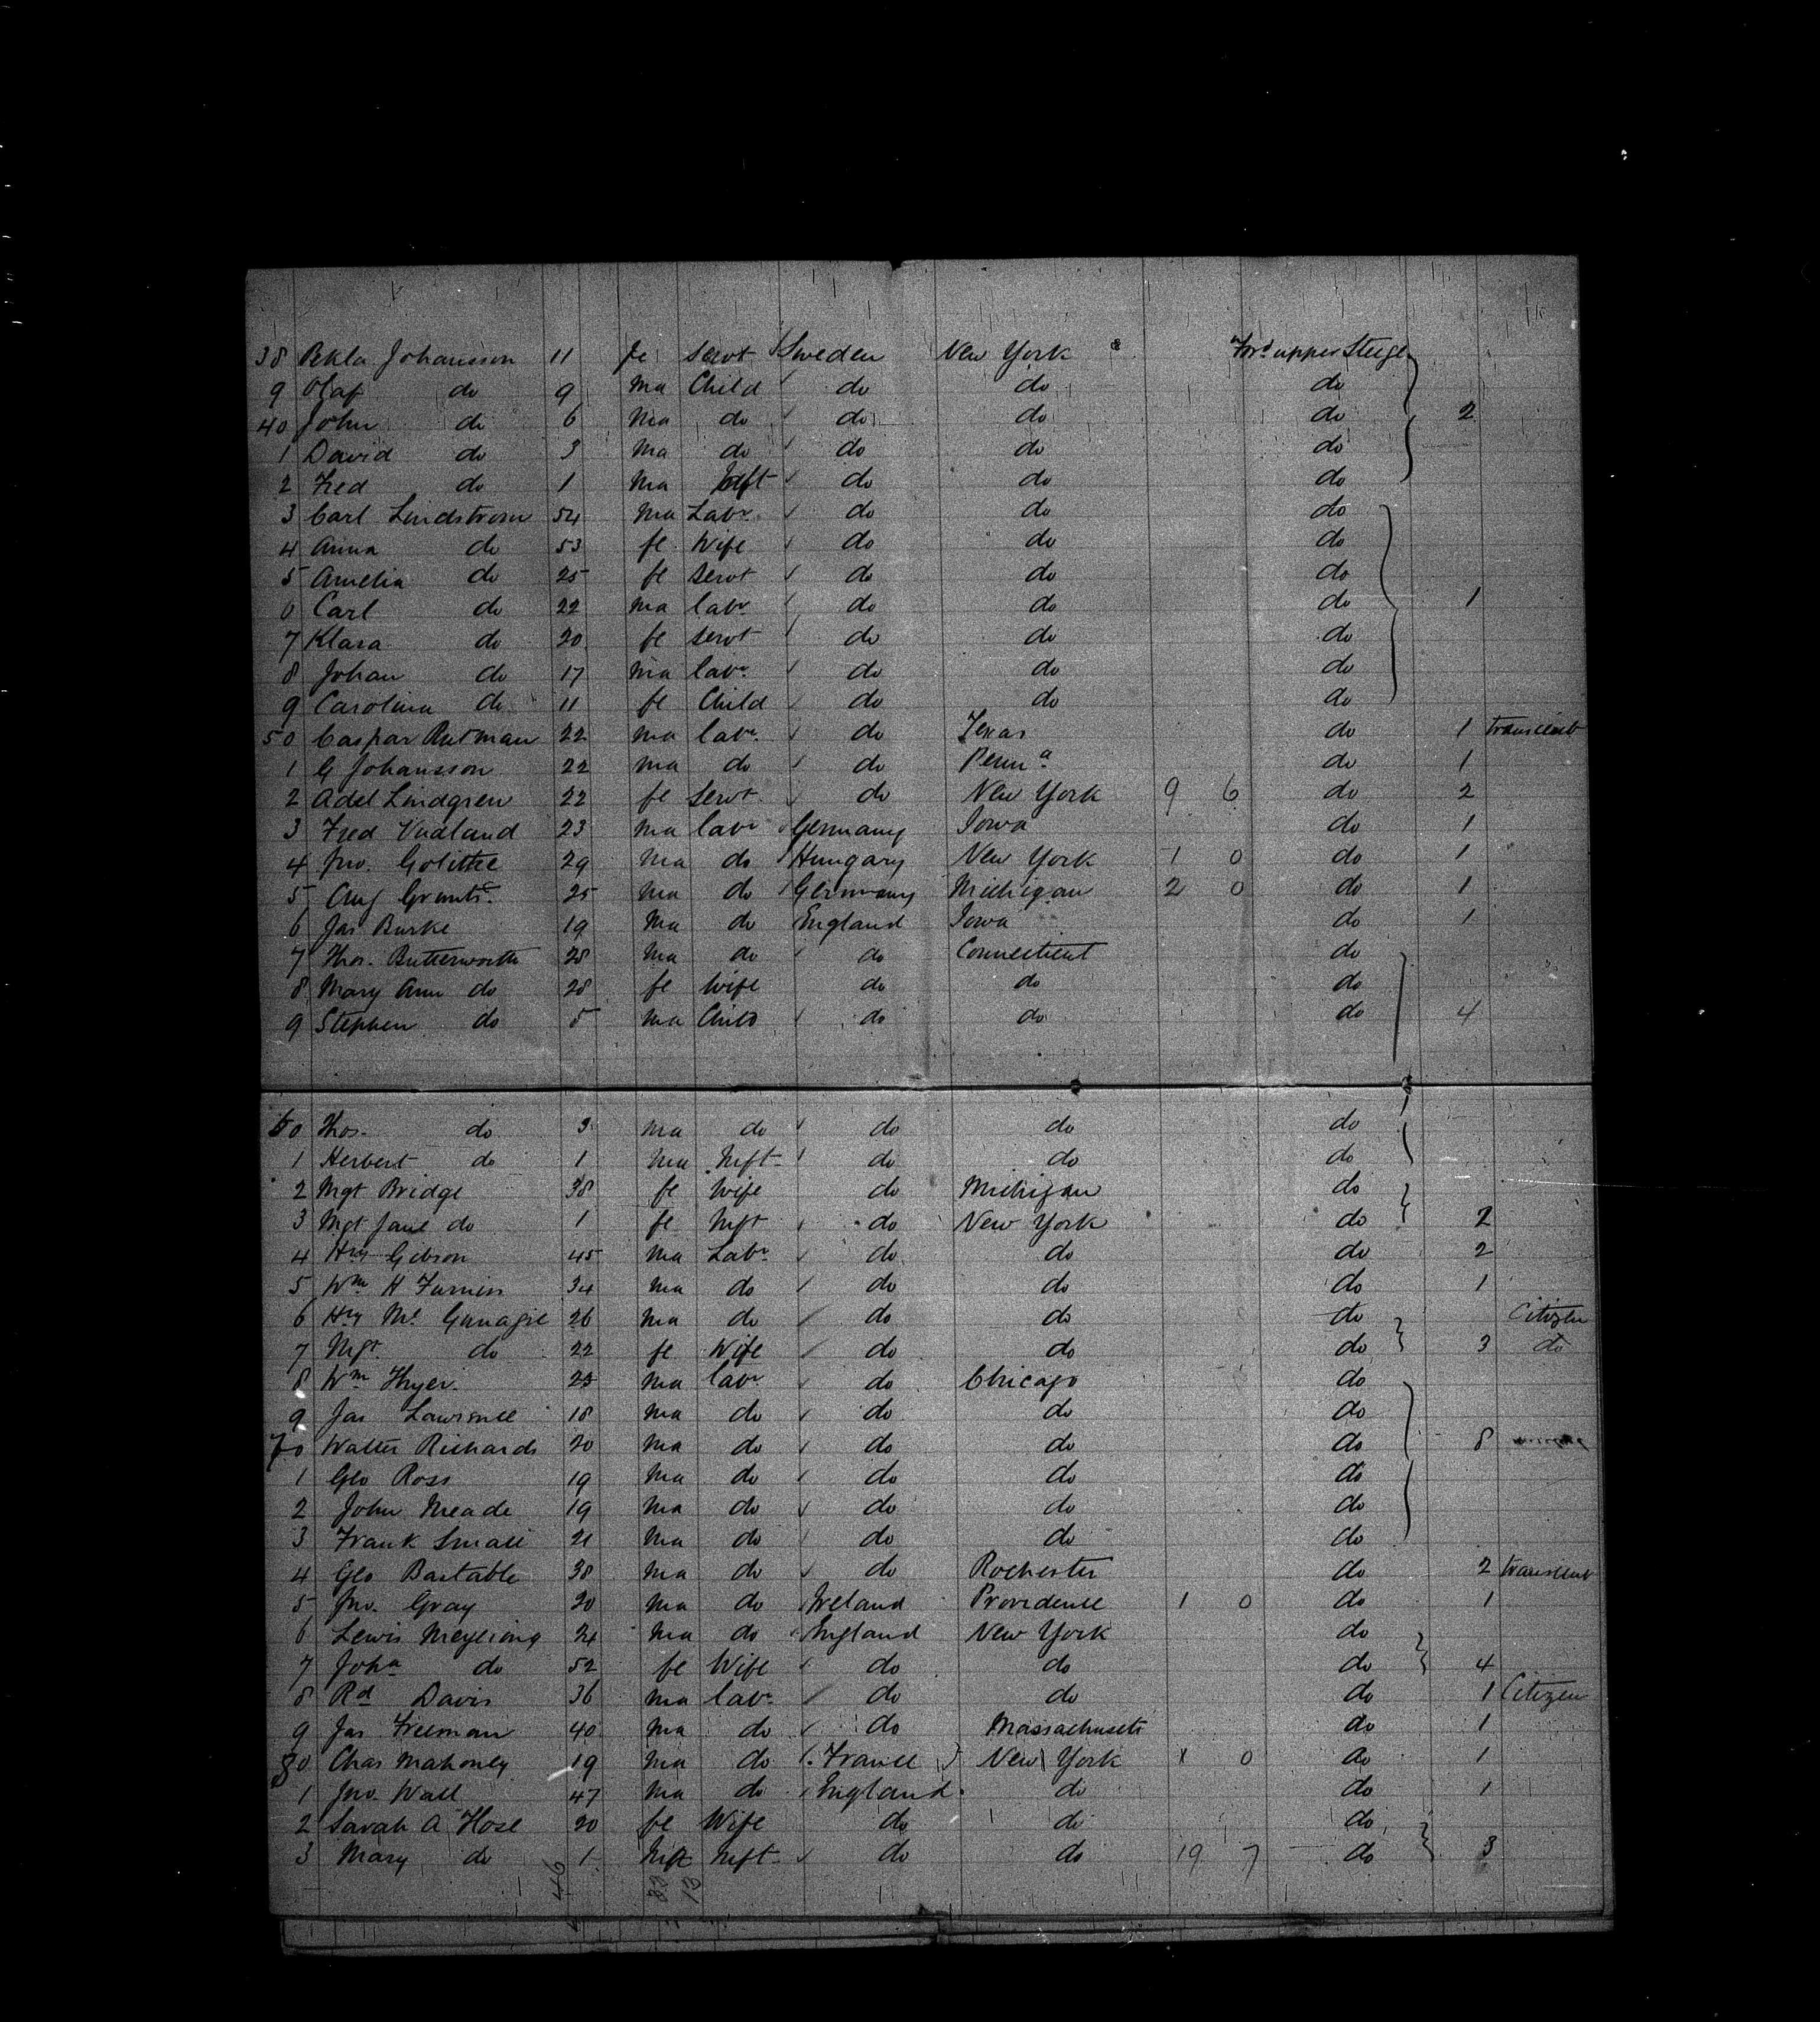 38 Pekla Johansson 11 fe Servt Sweden New York Ford upper Steige
9 Olaf do 9 ma Child do do do
40 John do 6 ma do do do do 2
1 David do 3 ma do do do do
2 Fred do 1 ma Inft do do do
3 Carl Lindstrom 54 ma Labr do do do
4 Anna do 53 fe Wife do do do
5 Amelia do 25 fe Servt do do do
6 Carl do 22 ma labr do do do 1
7 Klara do 20 fe servt do do do
8 Johan do 17 ma labr do do do
9 Carolina do 11 fe Child do do do
50 Caspar Rutman 22 ma labr do Texas do 1 transient
1 G Johansson 22 ma do do Penna do 1
2 Adel Lindgren 22 fe Servt do New York 9 6 do 2
3 Fred Vadland 23 ma labr Germany Iowa do 1
4 Jno. Golithe 29 ma do Hungary New York 1 0 do 1
5 Aug 25 ma do Germany Michigan 2 0 do 1
6 Jas Burke 19 ma do England Iowa do 1
7 Thos. Butterworth 28 ma do do Connecticut do
8 Mary Ann do 28 fe Wife do do do
9 Stephen do 5 ma Child do do do 4
60 Thos. do 3 ma do do do do
1 Herbert do 1 ma Inft do do do
2 Mgt Bridge 38 fe Wife do Michigan do
3 Mgt Jane do 1 fe Inft do New York do 2
4 Hry Gibson 45 ma Labr do do do 2
5 Wm H Furniss 34 ma do do do do 1
6 Hry Mc 26 ma do do do do Citizen
7 Mgt do 22 fe Wife do do do 3 do
8 Wm Thyer 25 ma labr do Chicago do
9 Jas Lawrence 18 ma do do do do
70 Walter Richards 20 ma do do do do 8
1 Geo Ross 19 ma do do do do
2 John Meade 19 ma do do do do
3 Frank Small 21 ma do do do do
4 Geo Bastable 38 ma do do Rochester do 2 transient
5 Jno. Gray 20 ma do Ireland Providence 1 0 do 1
6 Lewis 24 ma do England New York do
7 Joha do 52 fe Wife do do do 4
8 Rd Davis 36 ma labr do do do 1 Citizen
9 Jas Freeman 40 ma do do Massachusets do 1
80 Chas Mahoney 19 ma do France New York 1 0 do 1
1 Jno. Wall 47 ma do England do do 1
2 Sarah A Hose 20 fe Wife do do do
3 Mary do 1 Inft do do 19 7 do 3
46 33 13